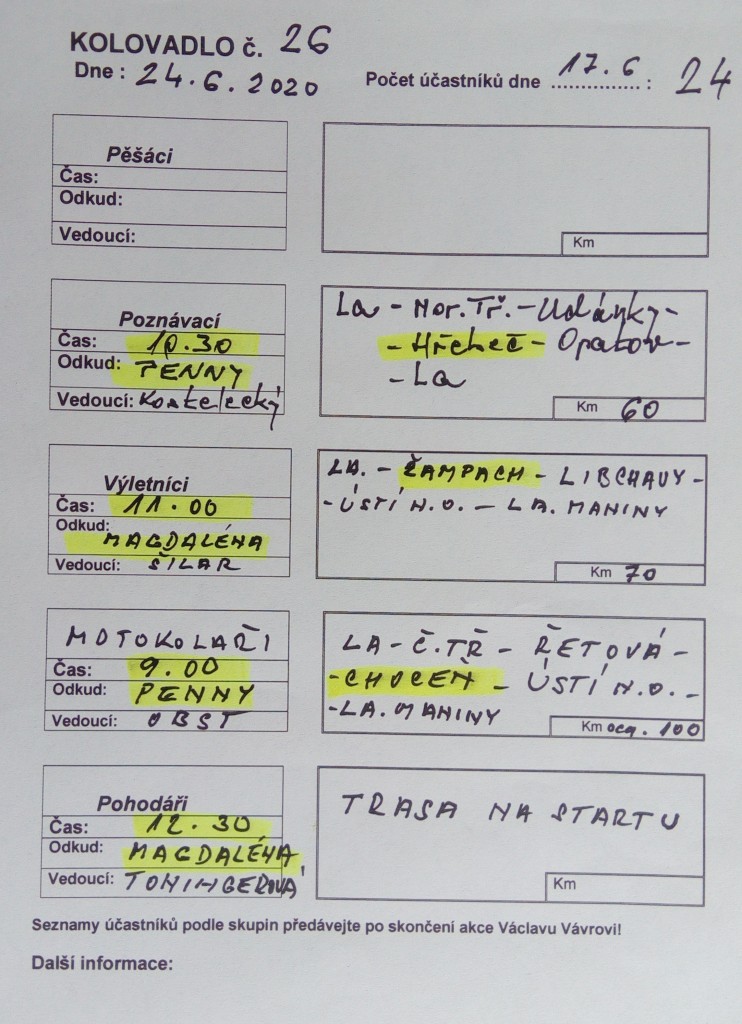 KOLOVADLO č. 26
Dne : 24.6.2020
Počet účastníků dne 17.6 : 24
Pěšáci
Čas:
Odkud:
Vedoucí:
Km
Poznávací
Čas: 10.30
Odkud: PENNY
Vedoucí: Kostelecký
La - Mor. Tř. - Udánky -
- Hřebeč - Opatov -
- La
Km 60
Výletníci
Čas: 11.00
Odkud: MAGDALÉNA
Vedoucí: ŠILAR
LA. - ŽAMPACH - LIBCHAVY -
- ÚSTÍ N.O. - LA. MANINY
Km 70
MOTOKOLAŘI
Čas: 9.00
Odkud: PENNY
Vedoucí: OBST
LA - Č.TŘ - ŘETOVÁ -
- CHOCEŇ - ÚSTÍ N.O. -
- LA. MANINY
Km oca. 100
Pohodáři
Čas: 12.30
Odkud: MAGDALÉNA
Vedoucí: TONINGEROVÁ
TRASA NA STARTU
Km
Seznamy účastníků podle skupin předávejte po skončení akce Václavu Vávrovi!
Další informace: